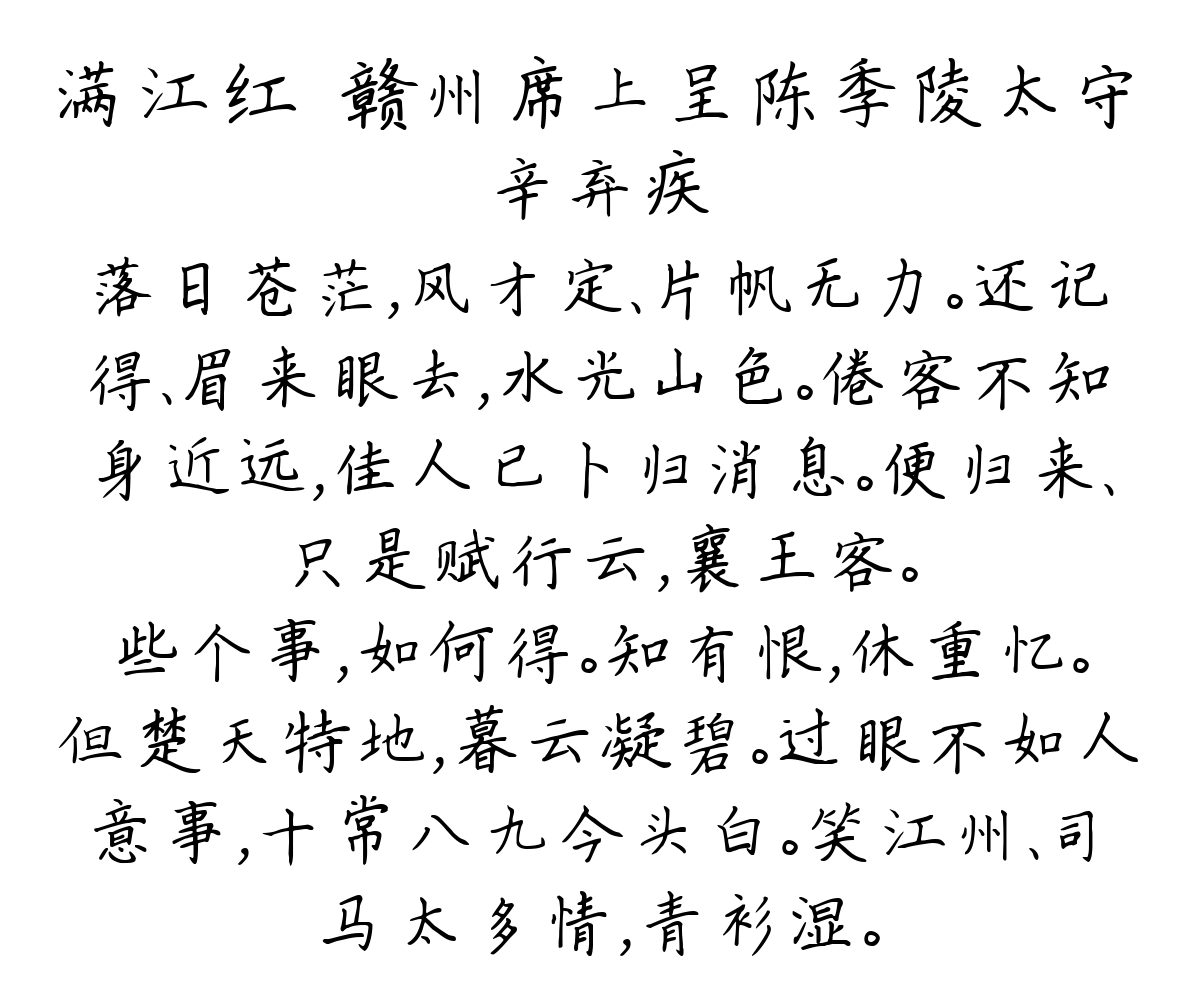 满江红 赣州席上呈陈季陵太守
辛弃疾
落日苍茫,风才定、片帆无力。还记
得、眉来眼去,水光山色。倦客不知
身近远,佳人已卜归消息。便归来、
只是赋行云,襄王客。
些个事,如何得。知有恨,休重忆。
但楚天特地,暮云凝碧。过眼不如人
意事,十常八九今头白。笑江州、司
马太多情,青衫湿。